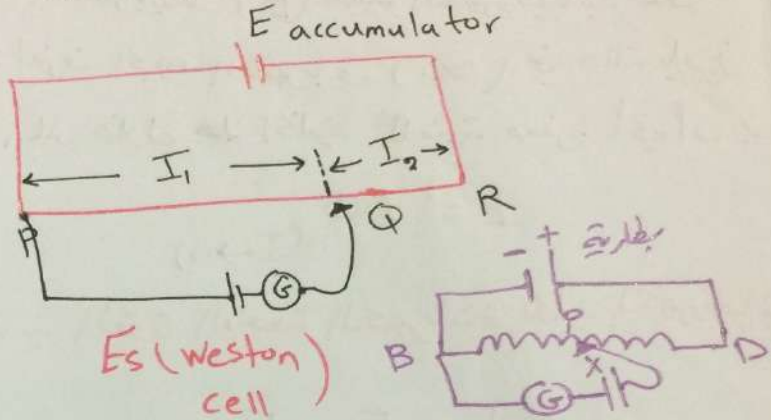 E accumulator
I₁ I₂
P Q R
G
Es (weston)
cell
- + بطارية
B X D
G